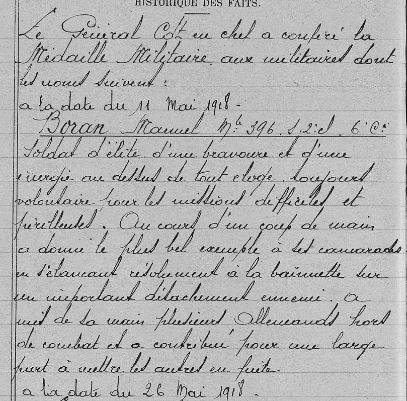 HISTORIQUE DES FAITS.
Le Général Ct en chef a conféré la
Médaille Militaire aux militaires dont
les noms suivent :
a la date du 11 Mai 1918 -
Boran Manuel Mle 396. S. 2e cl. 6e Cie
Soldat d'élite d'une bravoure et d'une
énergie au dessus de tout eloge. toujours
volontaire pour les missions difficiles et
périlleuses. Au cours d'un coup de main
a donné le plus bel exemple à ses camarades
en s'élancant résolument à la baïonnette sur
un important détachement ennemi. a
mis de sa main plusieurs Allemands hors
de combat et a contribué pour une large
part à mettre les autres en fuite.
a la date du 26 Mai 1918.